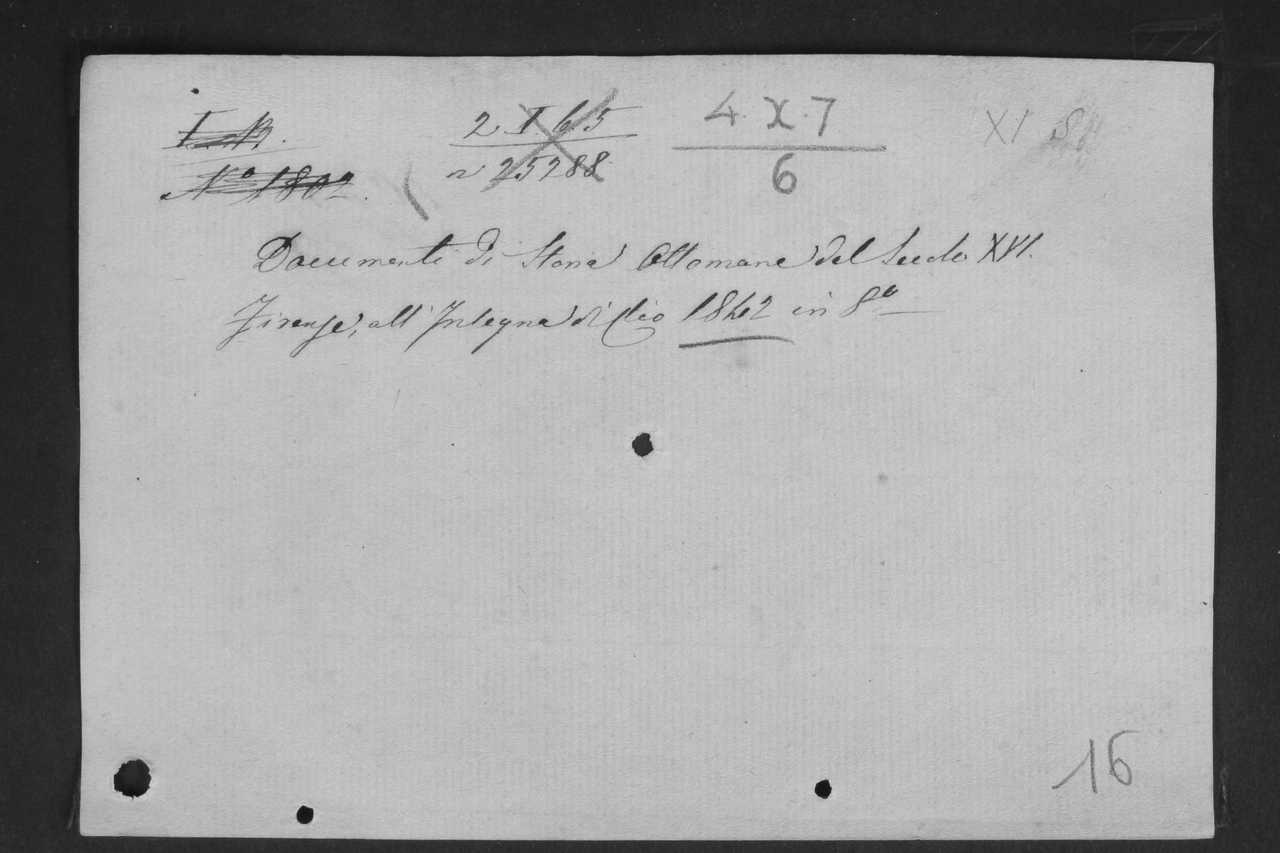 N° 1802.
2 I. 65
n 25288
4. X. 7
6
XI
Documenti di Storia Ottomana del Secolo XVI.
Firenze, all' Insegna di Clio 1842 in 8°
16